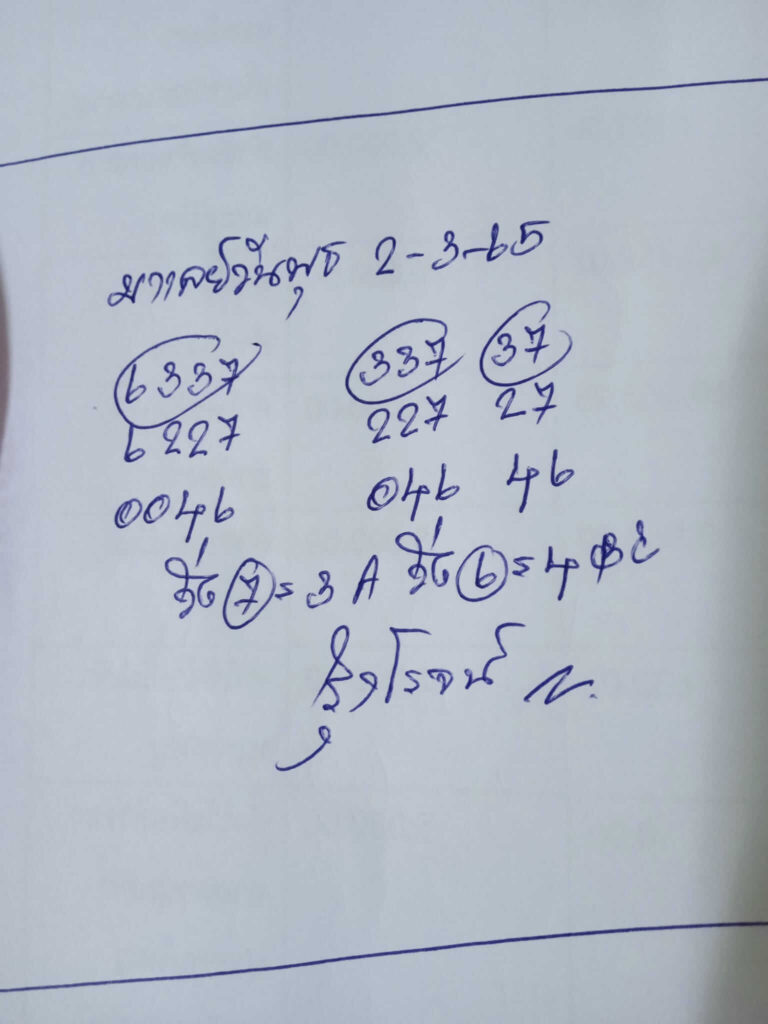 มาเลย์วันพุธ 2-3-65
6337 337 37
6227 227 27
0046 046 46
วิ่ง 7 = 3 A วิ่ง 6 = 4
รุ่งโรจน์